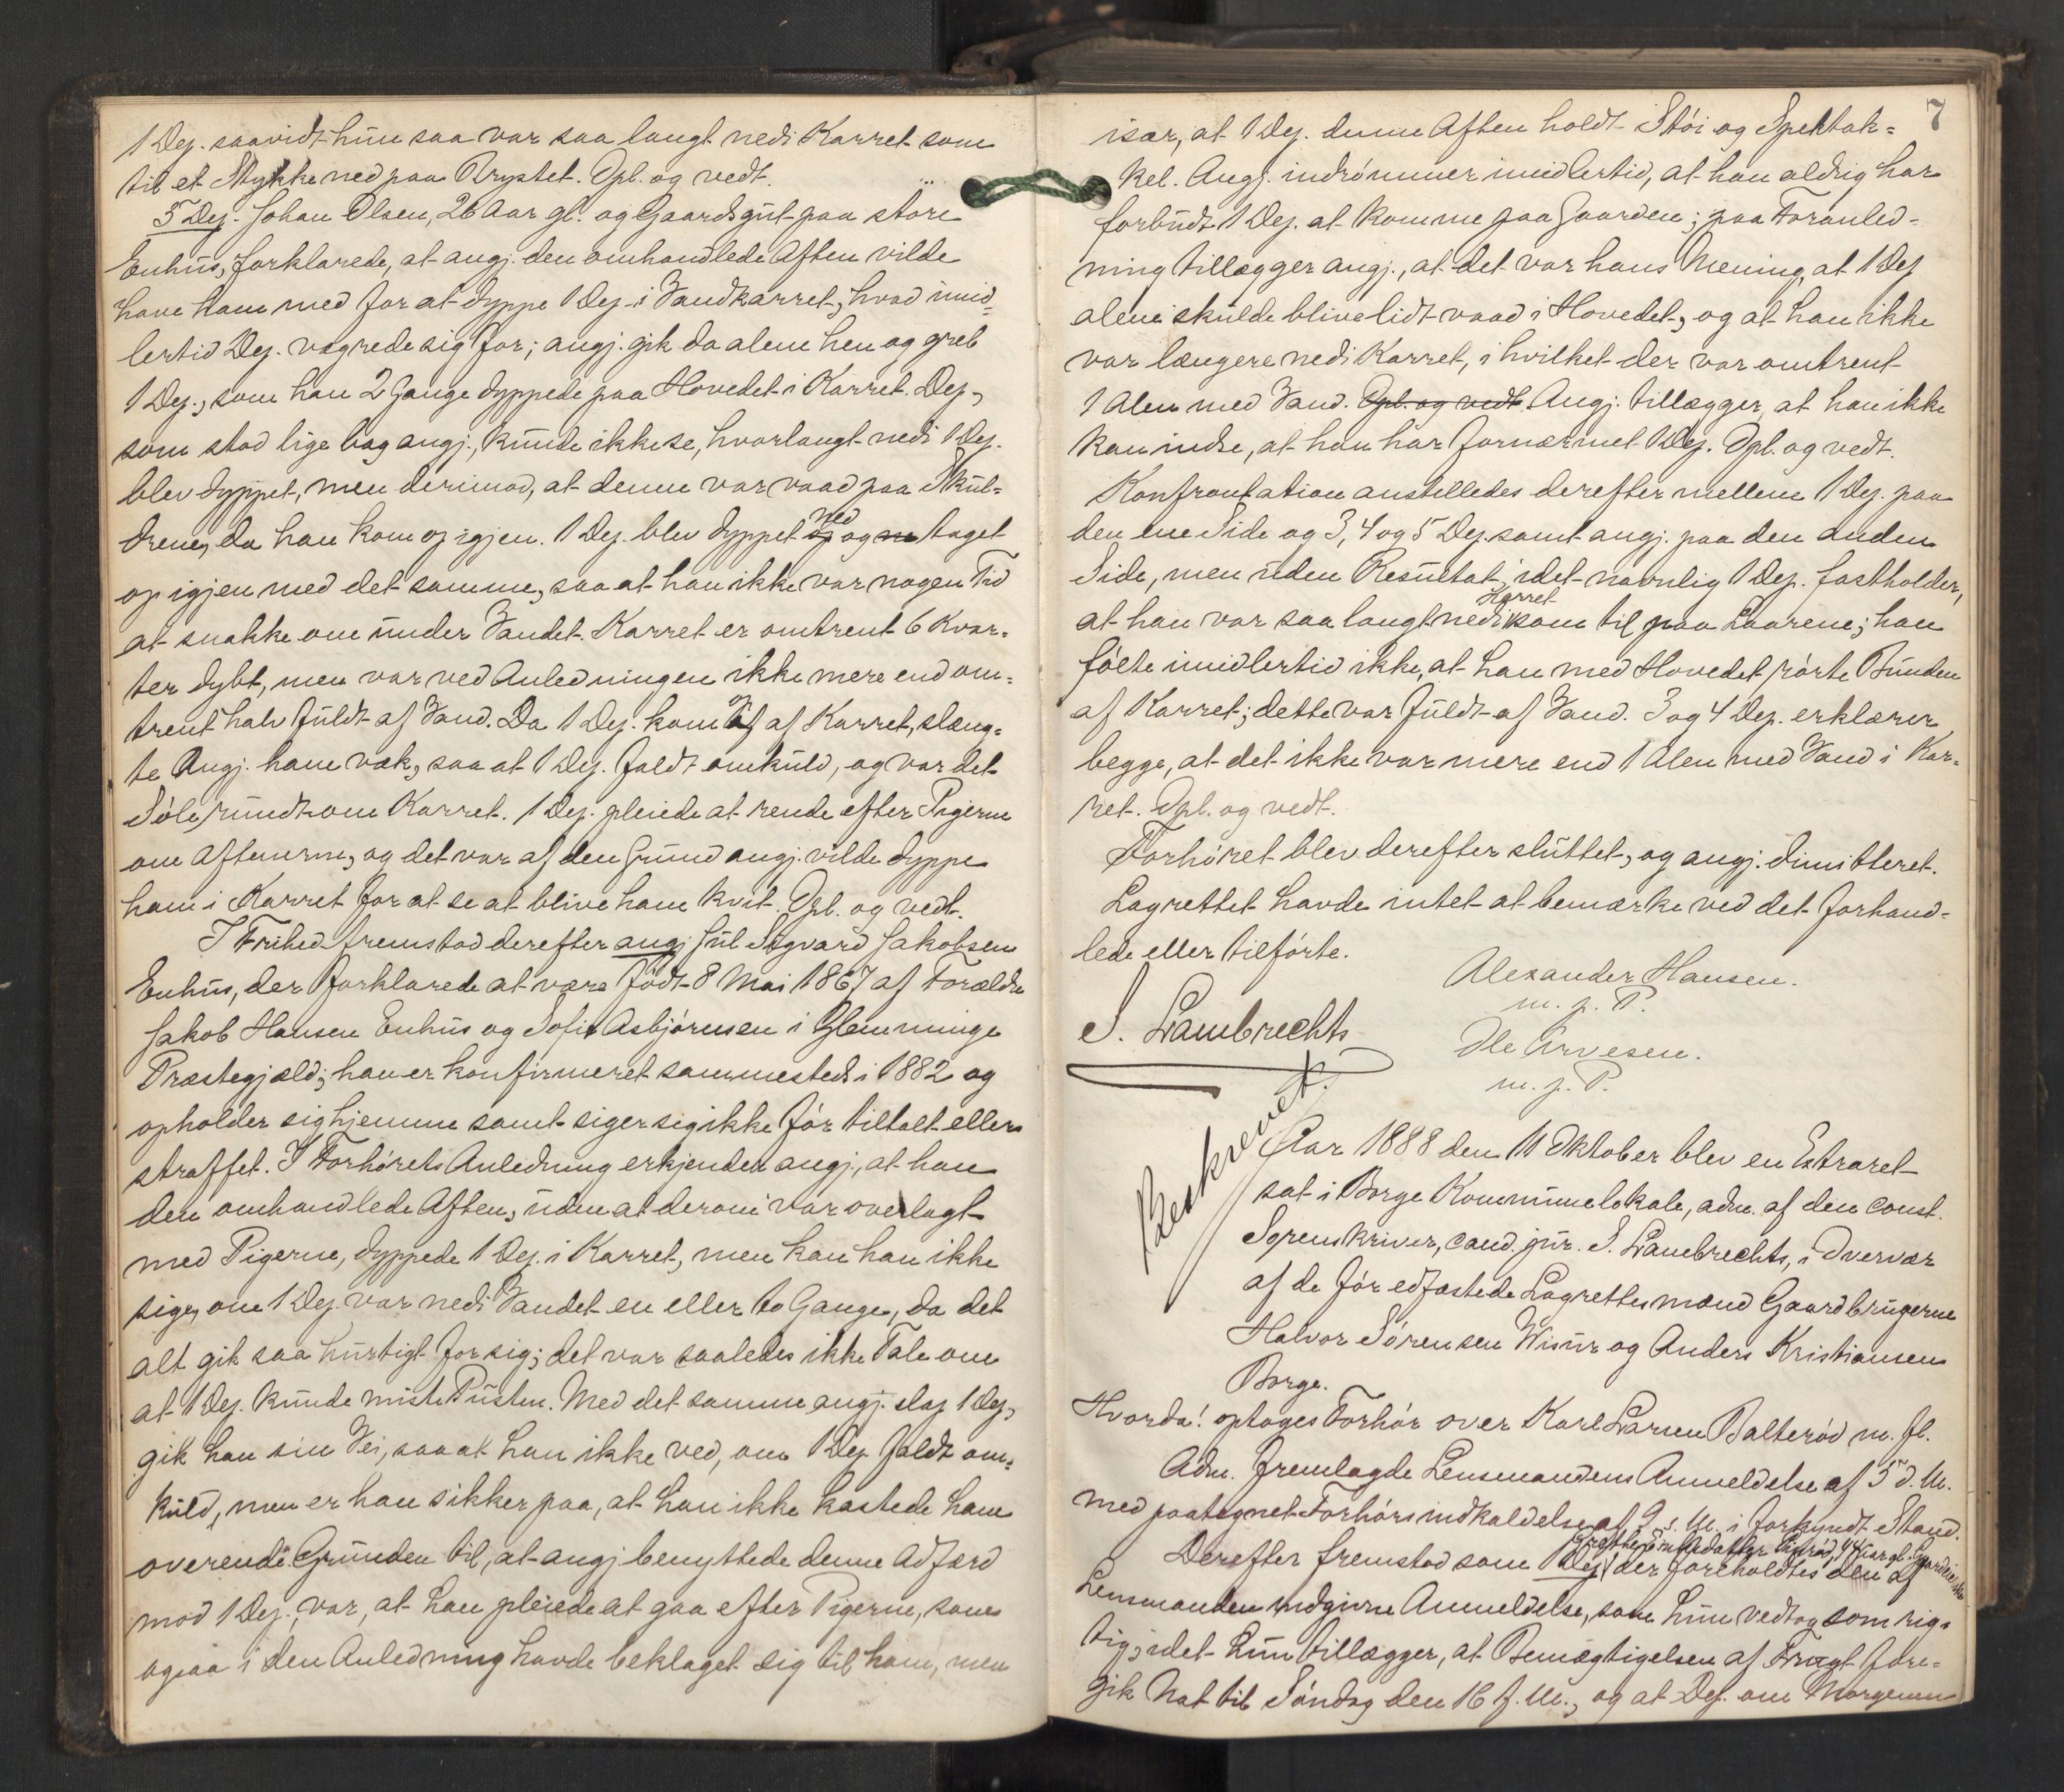 1 Dep. saavidt hun saa var saa langt nedi Karret som
til et Stykke ned paa Brystet. Opl. og vedt.
5 Dep. Johan Olsen, 26 Aar gl. og Gaardsgut paa store
Enhus, forklarede, at angj. den omhandlede Aften vilde
have ham med for at dyppe 1 Dep. i Vandkarret, hvad imid=
lertid Dep. vægrede sig for; angj. gik da alene hen og greb
1 Dep., som han 2 Gange dyppede paa Hovedet i Karret. Dep.,
som stod lige bag angj., kunde ikke se, hvorlangt nedi 1 Dep.
blev dyppet, men derimod, at denne var vaad paa Skul=
drene, da han kom op igjen. 1 Dep. blev dyppet ned og taget
op igjen med det samme, saa at han ikke var nogen Tid
at snakke om under Vandet. Karret er omtrent 6 Kvar=
ter dybt, men var ved Anledningen ikke mere end om=
trent halv fuldt af Vand. Da 1 Dep. kom af Karret, slæng=
te Angj. ham væk, saa at 1 Dep. faldt omkuld, og var det
Søle rundt om Karret. 1 Dep. pleiede at rende efter Pigerne
om Aftenerne, og det var af den Grund angj. vilde dyppe
ham i Karret for at se at blive ham kvit. Opl. og vedt.
I Frihed fremstod derefter angj. Jul Sigvard Jakobsen
Enhus, der forklarede at være født 8 Mai 1867 af Forældre
Jakob Hansen Enhus og Sofie Asbjørnsen i Glemminge
Præstegjæld; han er konfirmeret sammesteds i 1882 og
opholder sig hjemme samt siger sig ikke før tiltalt eller
straffet. I Forhørets Anledning erkjender angj., at han
den omhandlede Aften, uden at derom var overlagt
med Pigerne, dyppede 1 Dep. i Karret, men kan han ikke
sige, om 1 Dep. var nedi Vandet en eller to Gange, da det
alt gik saa hurtigt for sig; det var saaledes ikke Tale om
at 1 Dep. kunde miste Pusten. Med det samme angj. slap 1 Dep.,
gik han sin Vei, saa at han ikke ved, om 1 Dep. faldt om=
kuld, men er han sikker paa, at han ikke kastede ham
overende. Grunden til, at angj. benyttede denne Adfærd
mod 1 Dep., var, at han pleiede at gaa efter Pigerne, som
ogsaa i den Anledning havde beklaget sig til ham, men
7
især, at 1 Dep. denne Aften holdt Støi og Spektak=
kel. Angj. indrømmer imidlertid, at han aldrig har
forbudt 1 Dep. at komme paa Gaarden; paa Foranled=
ning tillægger angj., at det var hans Mening, at 1 Dep.
alene skulde blive lidt vaad i Hovedet, og at han ikke
var længere nedi Karret, i hvilket der var omtrent
1 Alen med Vand. Opl. og vedt. Angj. tillægger, at han ikke
kan indse, at han har fornærmet 1 Dep. Opl. og vedt.
Konfrontation anstilledes derefter mellem 1 Dep. paa
den ene Side og 3, 4 og 5 Dep. samt angj. paa den anden
Side, men uden Resultat, idet navnlig 1 Dep. fastholder,
at han var saa langt nedi Karret som til paa Laarene; han
følte imidlertid ikke, at han med Hovedet rørte Bunden
af Karret; dette var fuldt af Vand. 3 og 4 Dep. erklærer
begge, at det ikke var mere end 1 Alen med Vand i Kar=
ret. Opl. og vedt.
Forhøret blev derefter sluttet, og angj. dimitteret.
Lagrettet havde intet at bemærke ved det forhand=
lede eller tilførte.
Alexander Hansen.
m. p. P.
S. Lambrechts
Ole Arvesen.
m. p. P.
Beskrevet.
Aar 1888 den 11 Oktober blev en Extraret
sat i Borge Kommunelokale, adm. af den const.
Sorenskriver, cand. jur. S. Lambrechts, i Overvær
af de før edfæstede Lagrettesmænd Gaardbrugerne
Halvor Sørensen Wisur og Anders Kristiansen
Borge.
Hvorda! optoges Forhør over Karl Larsen Balterød m. fl.
Adm. fremlagde Lensmandens Anmeldelse af 5 d. M.
med paategnet Forhørsindkaldelse af 9 s. M. i forkyndt Stand.
Derefter fremstod som 1 Dep. der foreholdtes den af
Lensmanden indgivne Anmeldelse, som hun vedtog som rig=
tig, idet hun tillægger, at Bemægtigelsen af Frugt fore=
gik Nat til Søndag den 16 f. M., og at Dep. om Morgenen